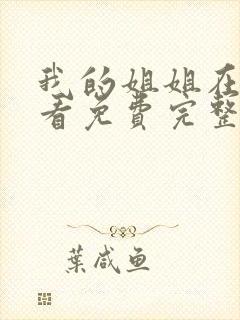 我的姐姐在
看免费完整
葉咸鱼